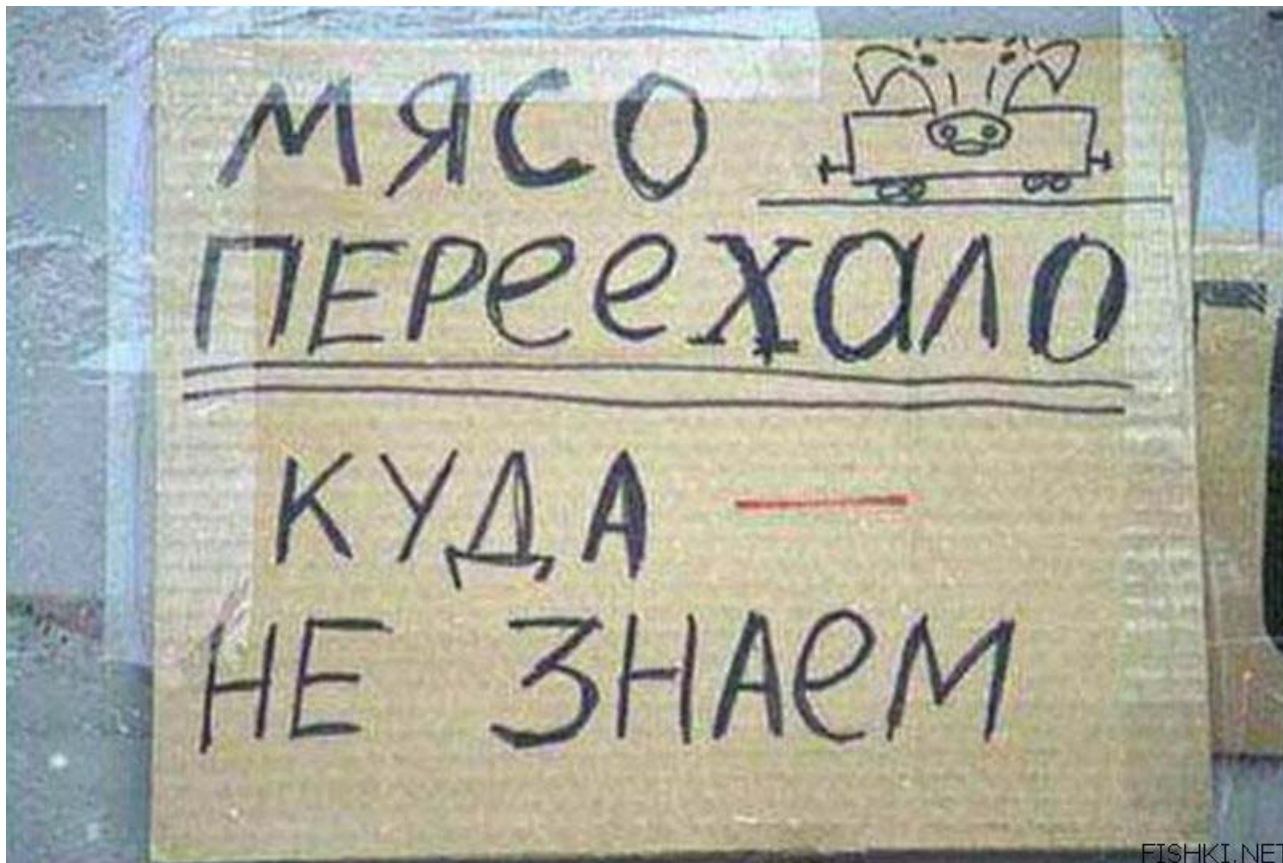 МЯСО
ПЕРеехало
КУДА —
НЕ ЗНАеМ
FISHKI.NET